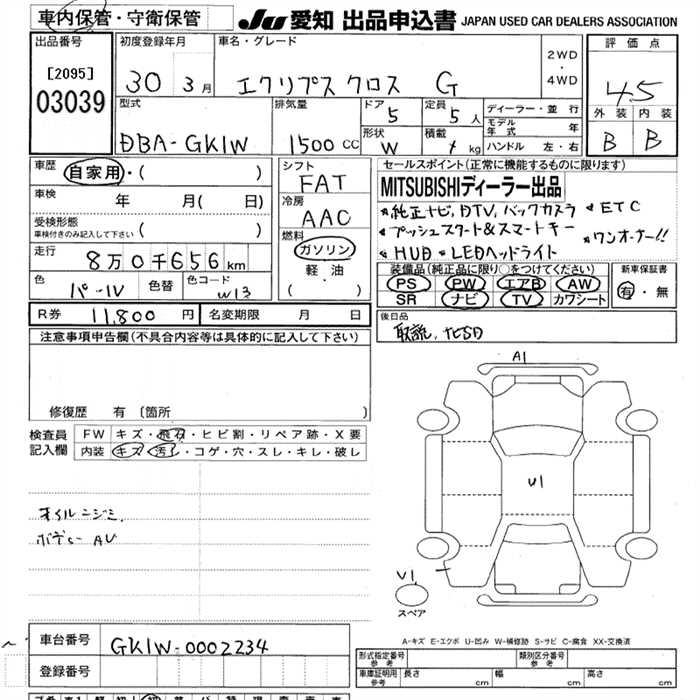 車内保管・守衛保管 JU 愛知 出品申込書 JAPAN USED CAR DEALERS ASSOCIATION
出品番号 初度登録年月 車名・グレード 2WD・4WD 評価点
[2095]
03039
30 3月 エクリプス クロス G 4.5
型式 排気量 ドア 定員 ディーラー・並行 外装 内装
DBA-GK1W 1500 CC 5 5人 モデル年式 年
形状 積載 ハンドル 左・右
W kg B B
車歴 自家用・( )
シフト FAT
セールスポイント(正常に機能するものに限ります)
MITSUBISHIディーラー出品
車検 年 月( 日)
冷房 AAC
*純正ナビ、DTV、バックカメラ *ETC
受検形態
車検付きのみ記入して下さい ( )
燃料 ガソリン
*プッシュスタート&スマートキー *ワンオーナー!!
*HUD *LEDヘッドライト
走行 8万0千656km
軽油
( )
装備品(純正品に限り○をつけてください) 新車保証書
PS PW エアB AW 有・無
SR ナビ TV カワシート
色 パール 色替 色コード W13
後日品
取説、
R券 11,800円 名変期限 月 日
注意事項申告欄(不具合内容等は具体的に記入して下さい)
修復歴 有 〔箇所 〕
A1
検査員記入欄 FW キズ・飛石・ヒビ割・リペア跡・X要
内装 キズ・汚レ・コゲ・穴・スレ・キレ・破レ
U1
オイルニジミ、
ボディー AU
U1
スペア
A-キズ E-エクボ U-凹み W-補修跡 S-サビ C-腐食 XX-交換済
車台番号 GK1W-0002234
登録番号
形式指定番号 参考 類別区分番号 参考
車庫証明用 参考 長さ cm 幅 cm 高さ cm